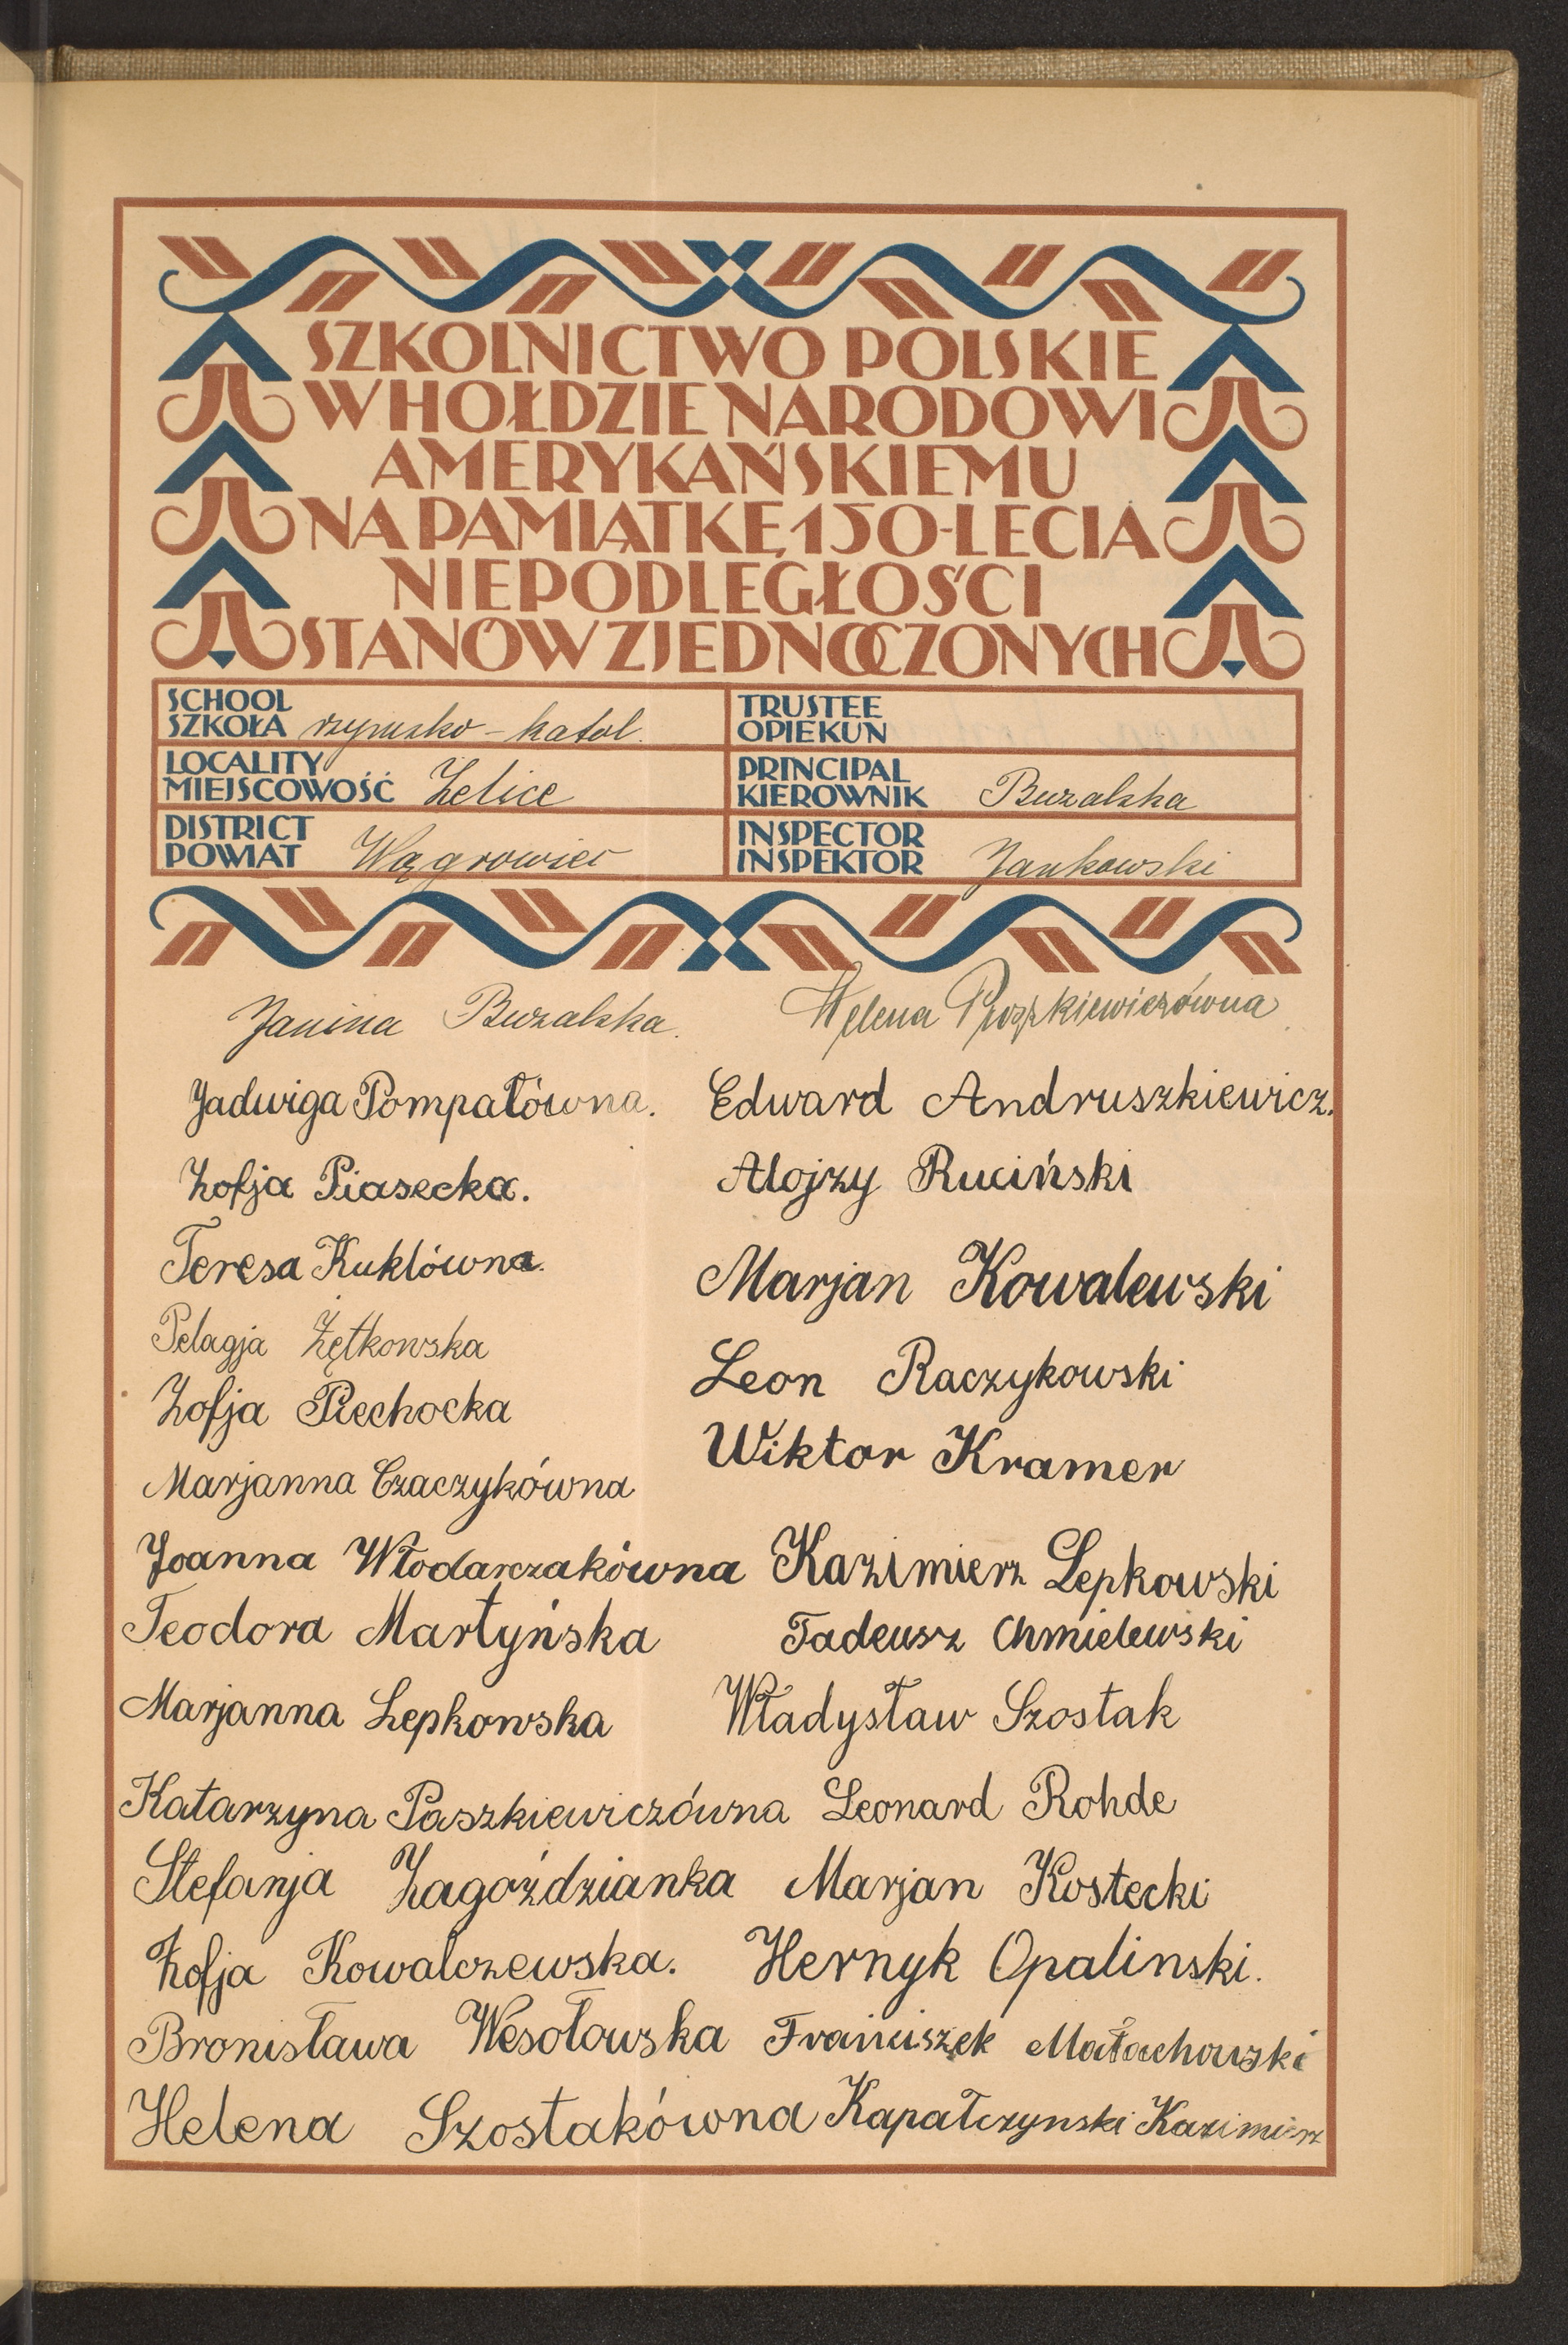 SZKOLNICTWO POLSKIE
W HOŁDZIE NARODOWI
AMERYKAŃSKIEMU
NA PAMIĄTKĘ 150-LECIA
NIEPODLEGŁOŚCI
STANÓW ZJEDNOCZONYCH
SCHOOL
SZKOŁA rzymsko-katol.
TRUSTEE
OPIEKUN
LOCALITY
MIEJSCOWOŚĆ Zelice
PRINCIPAL
KIEROWNIK Buzalska
DISTRICT
POWIAT Wągrowiec
INSPECTOR
INSPEKTOR Jankowski
Janina Buzalska. Helena
Jadwiga Pompałówna. Edward Andruszkiewicz.
Zofja Piasecka. Alojzy Ruciński
Teresa Kuklówna. Marjan Kowalewski
Pelagja Zętkowska Leon Raczykowski
Zofja Piechocka Wiktor Kramer
Marjanna Czaczykówna
Joanna Włodarczakówna Kazimierz Lepkowski
Teodora Martyńska Tadeusz Chmielewski
Marjanna Lepkowska Władysław Szostak
Katarzyna Paszkiewiczówna Leonard Rohde
Stefanja Zagoździanka Marjan Kostecki
Zofja Kowalczewska. Hernyk Opalinski.
Bronisława Wesołowska Franciszek Małachowski
Helena Szostakówna Kapałczynski Kazimierz